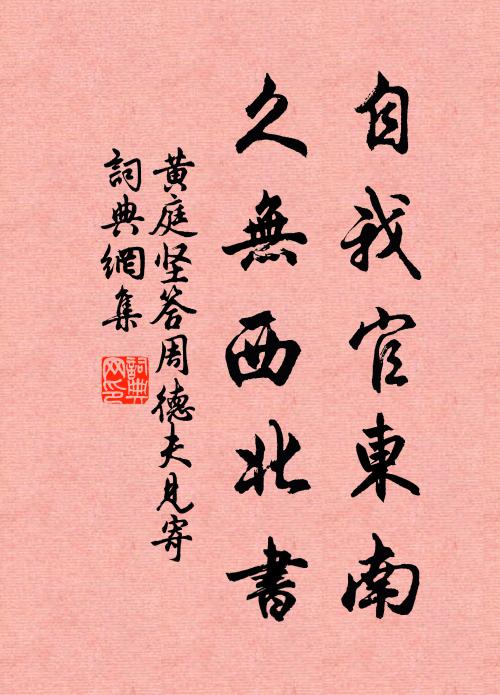 自我官東南
久無西北書
黄庭坚答周德夫見寄
詞典網集
詞典網印